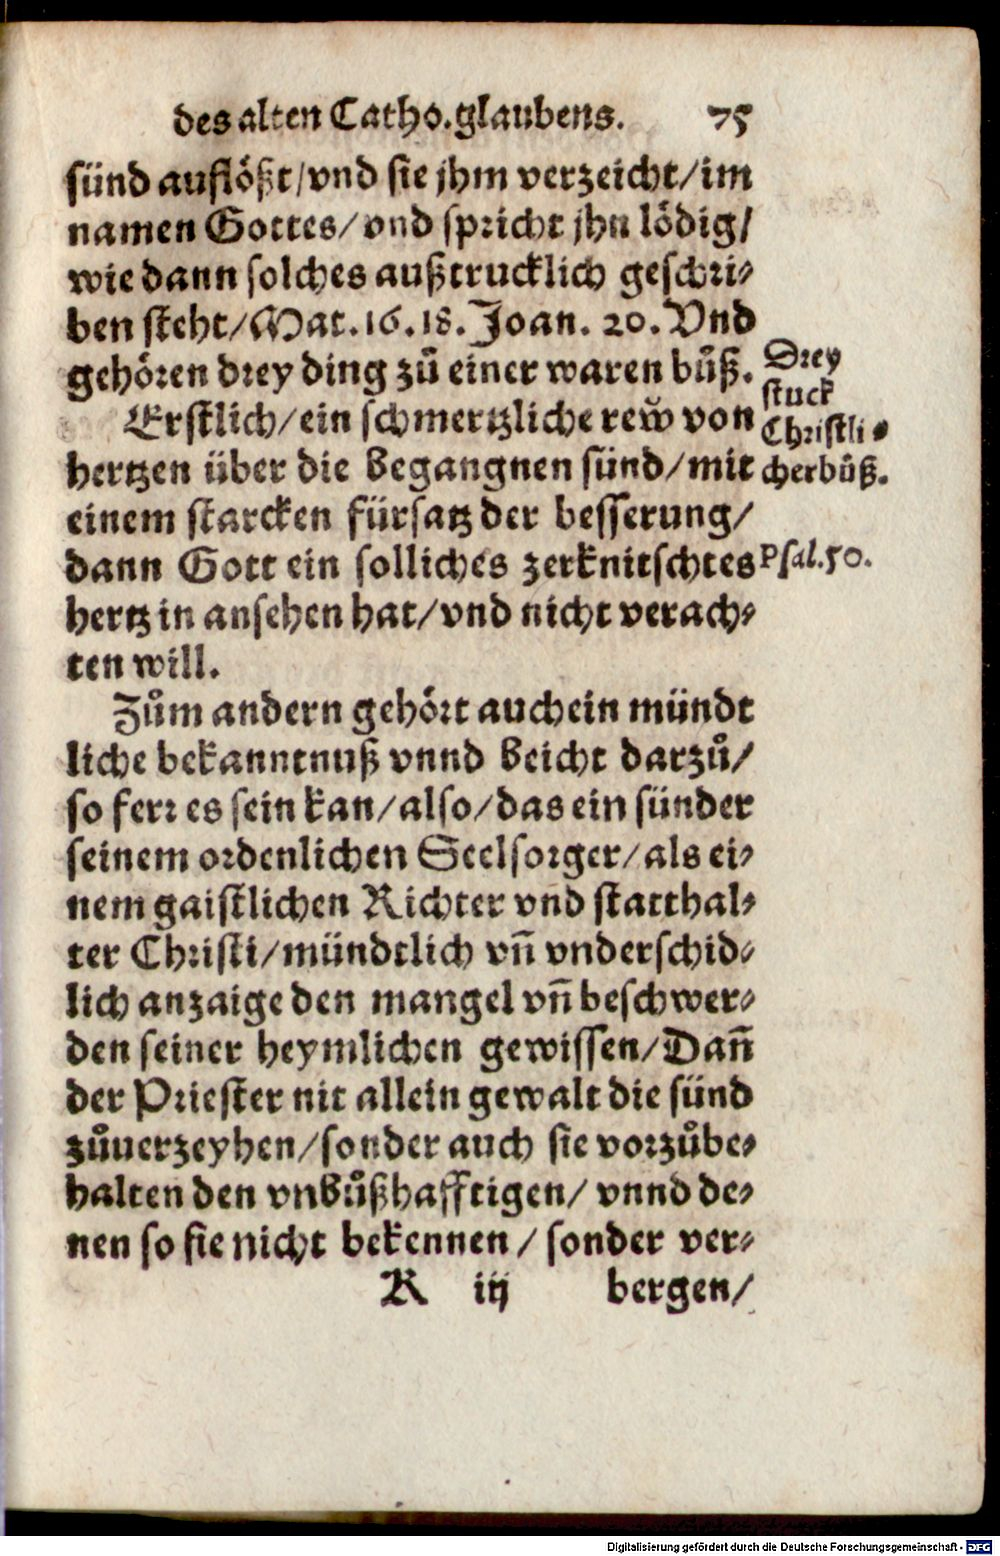 des alten Catho. glaubens. 75
sünd auflößt/ vnd sie jhm verzeicht/ im
namen Gottes/ vnd spricht jhn lödig/
wie dann solches außtrucklich geschri⸗
ben steht/ Mat. 16. 18. Joan. 20. Vnd
gehören drey ding zů einer waren bůß.
Drey
stuck
Christli⸗
cher bůß.
Erstlich/ ein schmertzliche rew̃ von
hertzen über die begangnen sünd/ mit
einem starcken fürsatz der besserung/
dann Gott ein solliches zerknitschtes
Psal. 50.
hertz in ansehen hat/ vnd nicht verach⸗
ten will.
Zům andern gehört auch ein mündt
liche bekanntnuß vnnd beicht darzů/
so ferr es sein kan/ also/ das ein sünder
seinem ordenlichen Seelsorger/ als ei⸗
nem gaistlichen Richter vnd statthal⸗
ter Christi/ mündtlich vñ vnderschid⸗
lich anzaige den mangel vñ beschwer⸗
den seiner heymlichen gewissen/ Dañ
der Priester nit allein gewalt die sünd
zůuerzeyhen/ sonder auch sie vorzůbe⸗
halten den vnbůßhafftigen/ vnnd de⸗
nen so sie nicht bekennen/ sonder ver⸗
K iij bergen/
Digitalisierung gefördert durch die Deutsche Forschungsgemeinschaft - DFG